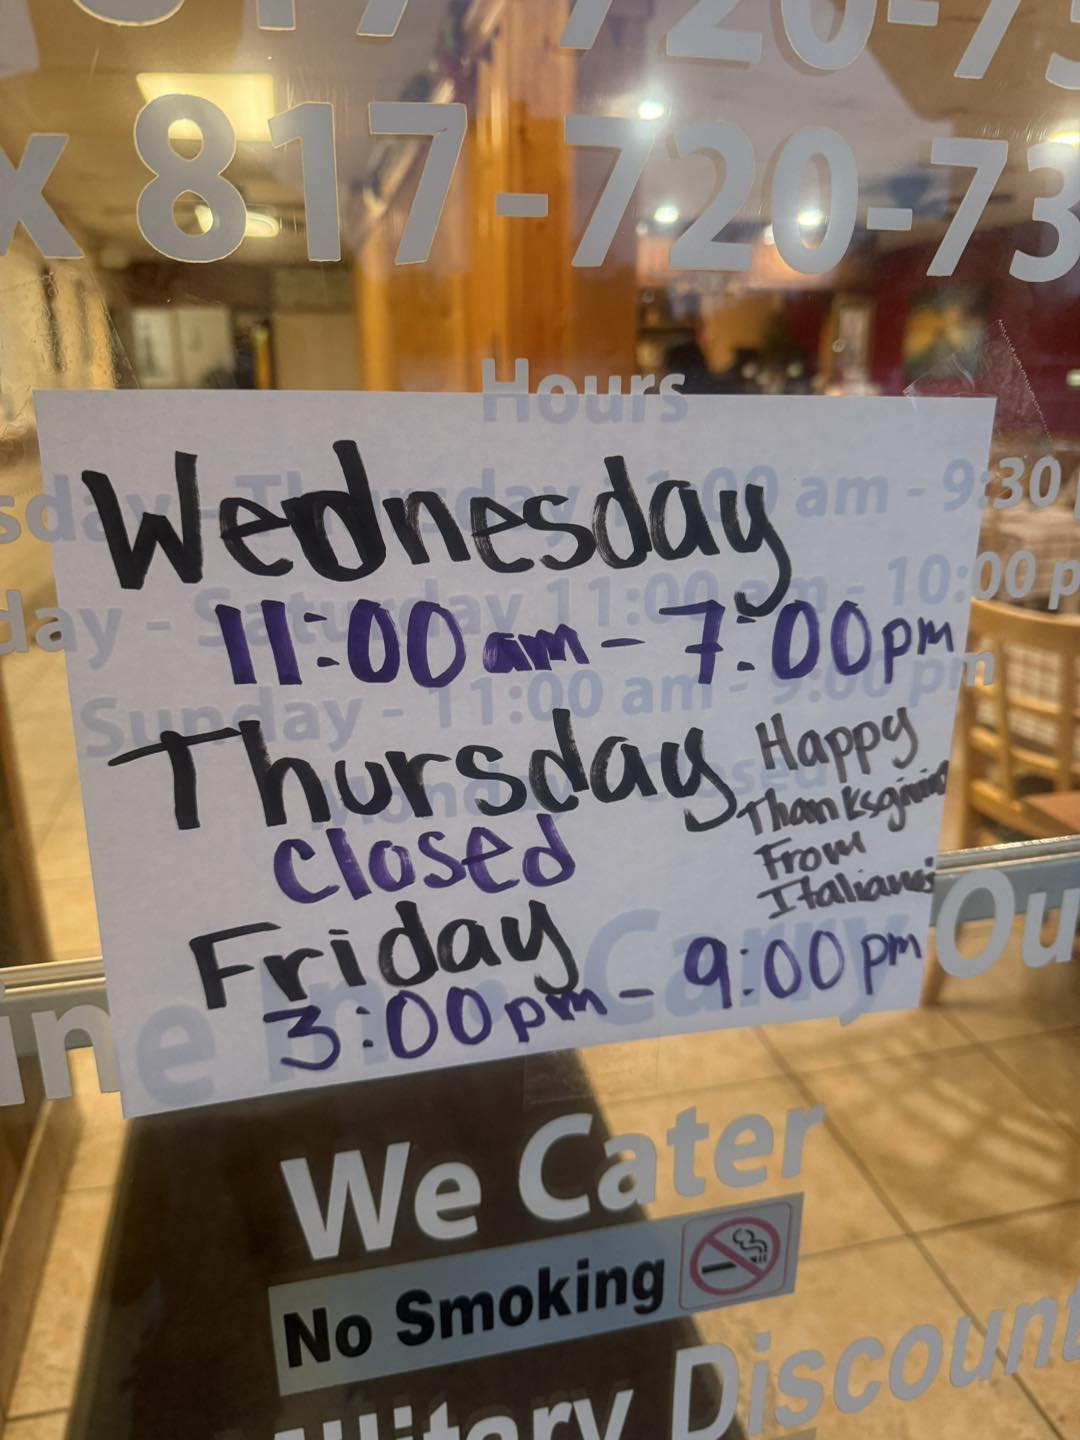 817-720-73
x 817-720-73
Hours
sday - Thursday 11:00 am - 9:30
day - Saturday 11:00 am - 10:00 p
Sunday - 11:00 am - 9:00 pm
Monday Closed
Wednesday
11:00 am - 7:00 pm
Thursday
closed
Happy
Thanksgiving
From
Italianos
Friday
3:00 pm - 9:00 pm
ine In - Carry Ou
We Cater
No Smoking
Military Discount